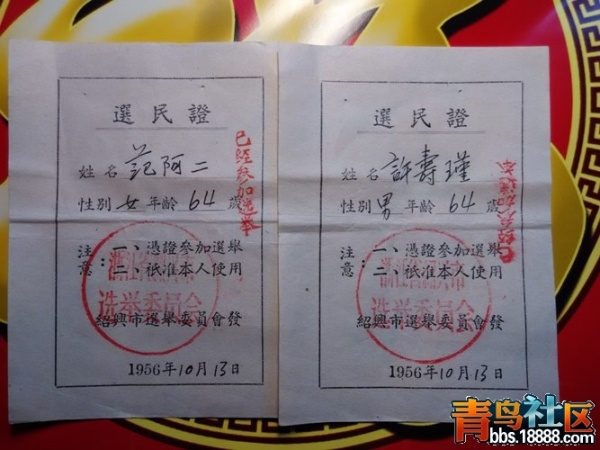 選民證
姓名 范阿二
性別 女 年齡 64 歲
注意：一、憑證參加選舉
二、祇准本人使用
紹興市選舉委員會發
1956年10月13日
已經參加選舉
浙江省紹兴市
选举委員会
選民證
姓名 許壽瑾
性別 男 年齡 64 歲
注意：一、憑證參加選舉
二、祇准本人使用
紹興市選舉委員會發
1956年10月13日
浙江省紹兴市
选举委員会
青鸟社区
bbs.18888.com